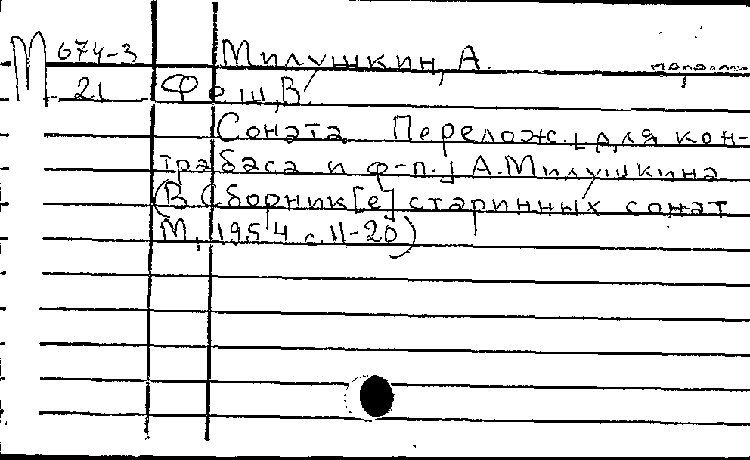 М 674-3 Милушкин, А. перелож.
21 Феш, В.
Соната. Перелож. [для кон-
трабаса и ф-п.] А. Милушкина
(В Сборник[е] старинных сонат
М, 1954 с. 11-20)